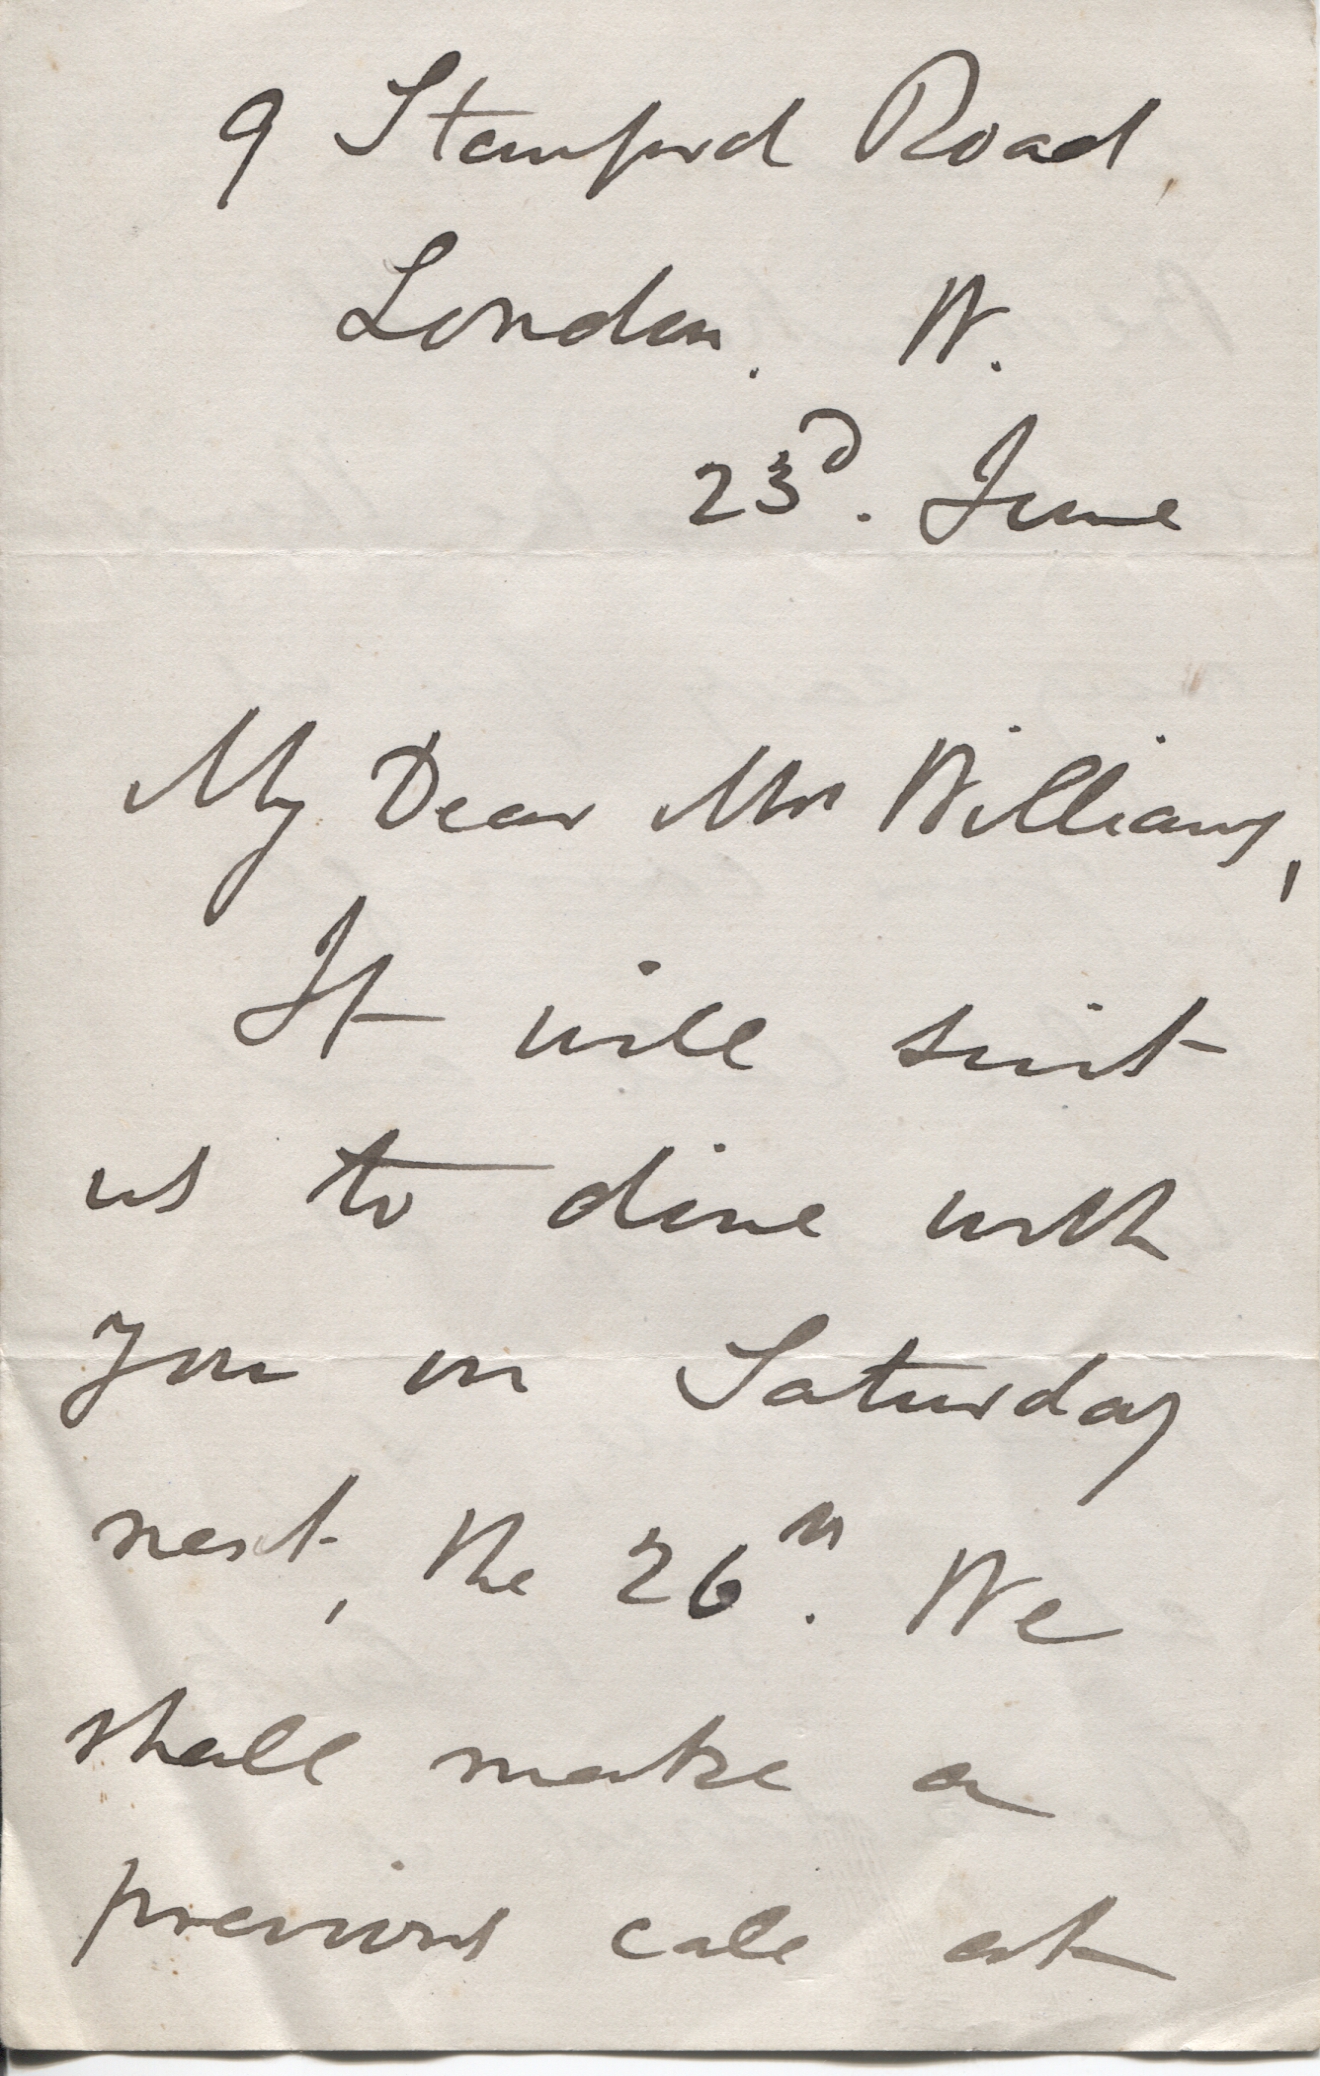 9 Stamford Road,
London. W.
23d. June
My Dear Mrs Williams,
It will suit
us to dine with
you on Saturday
next, the 26th. We
shall make a
previous call at